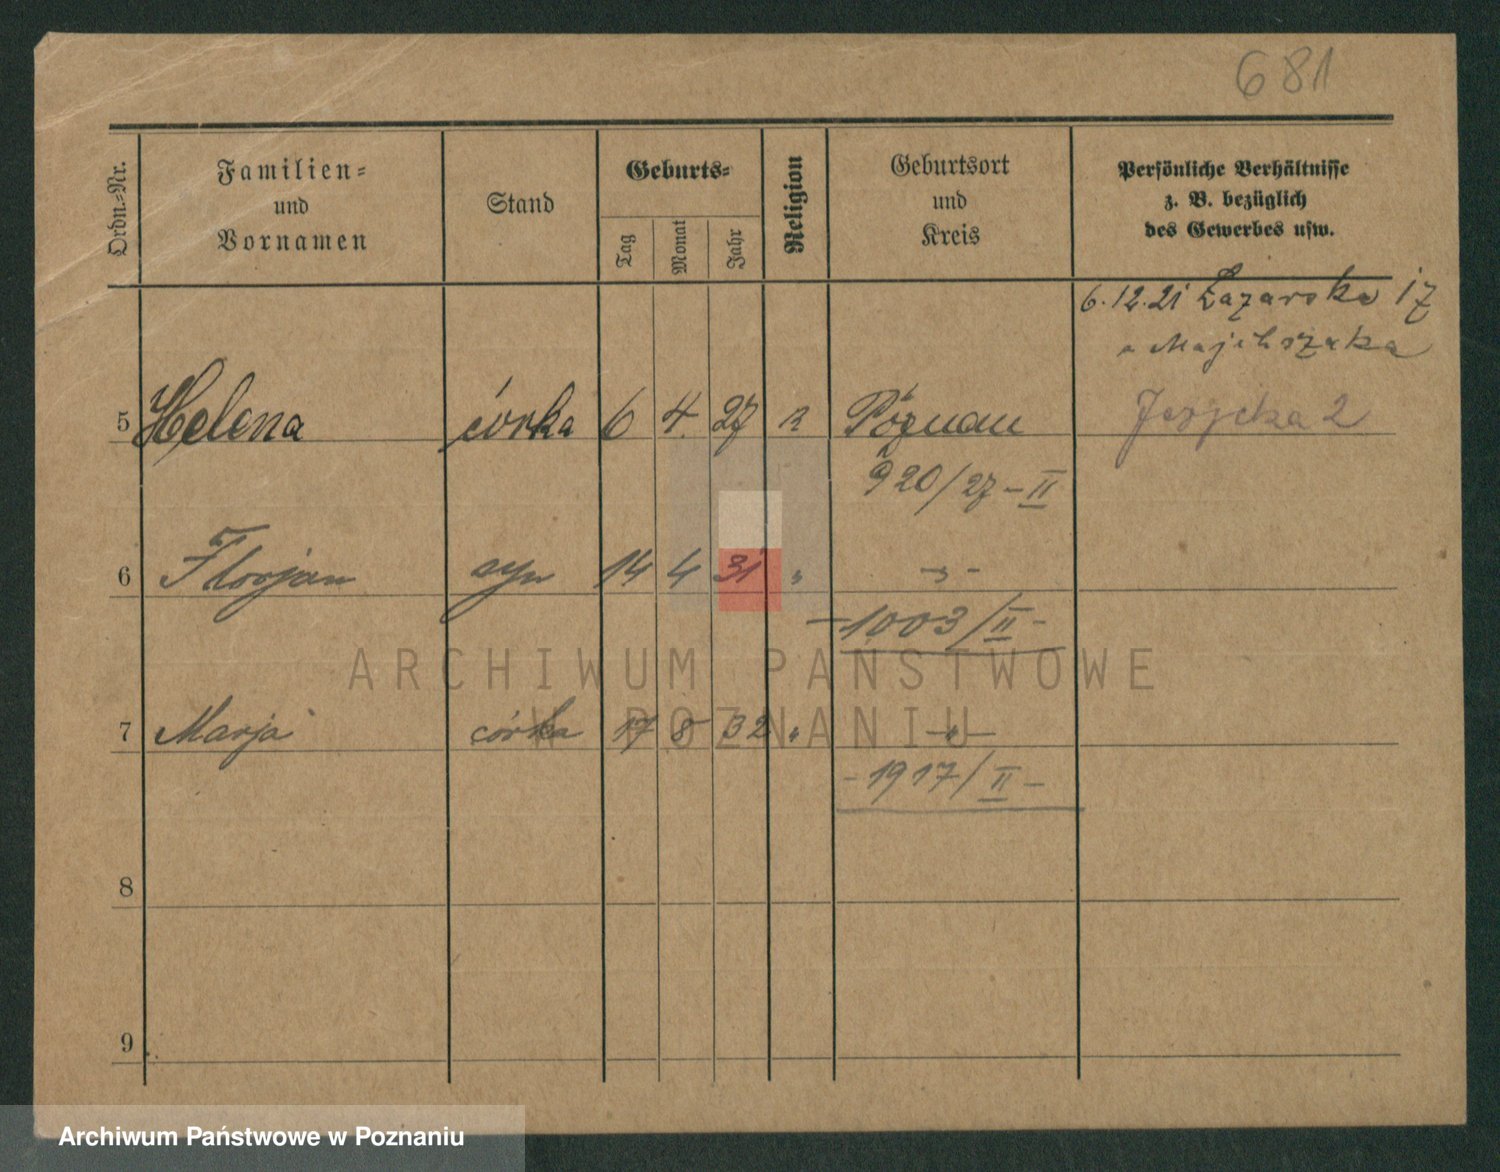 681
Ordn.=Nr.
Familien=
und
Vornamen
Stand
Geburts=
Tag
Monat
Jahr
Religion
Geburtsort
und
Kreis
Persönliche Verhältnisse
z. B. bezüglich
des Gewerbes usw.
6.12.21 Łazarska 17
u Majchszaka
5 Helena córka 6 4. 27 Poznań
920/27 - II
6 Florjan syn 14 4 31 " - " -
- 1003/II -
ARCHIWUM PAŃSTWOWE
W POZNANIU
7 Marja córka 17 8 32 " - " -
- 1917/II -
8
9
Archiwum Państwowe w Poznaniu